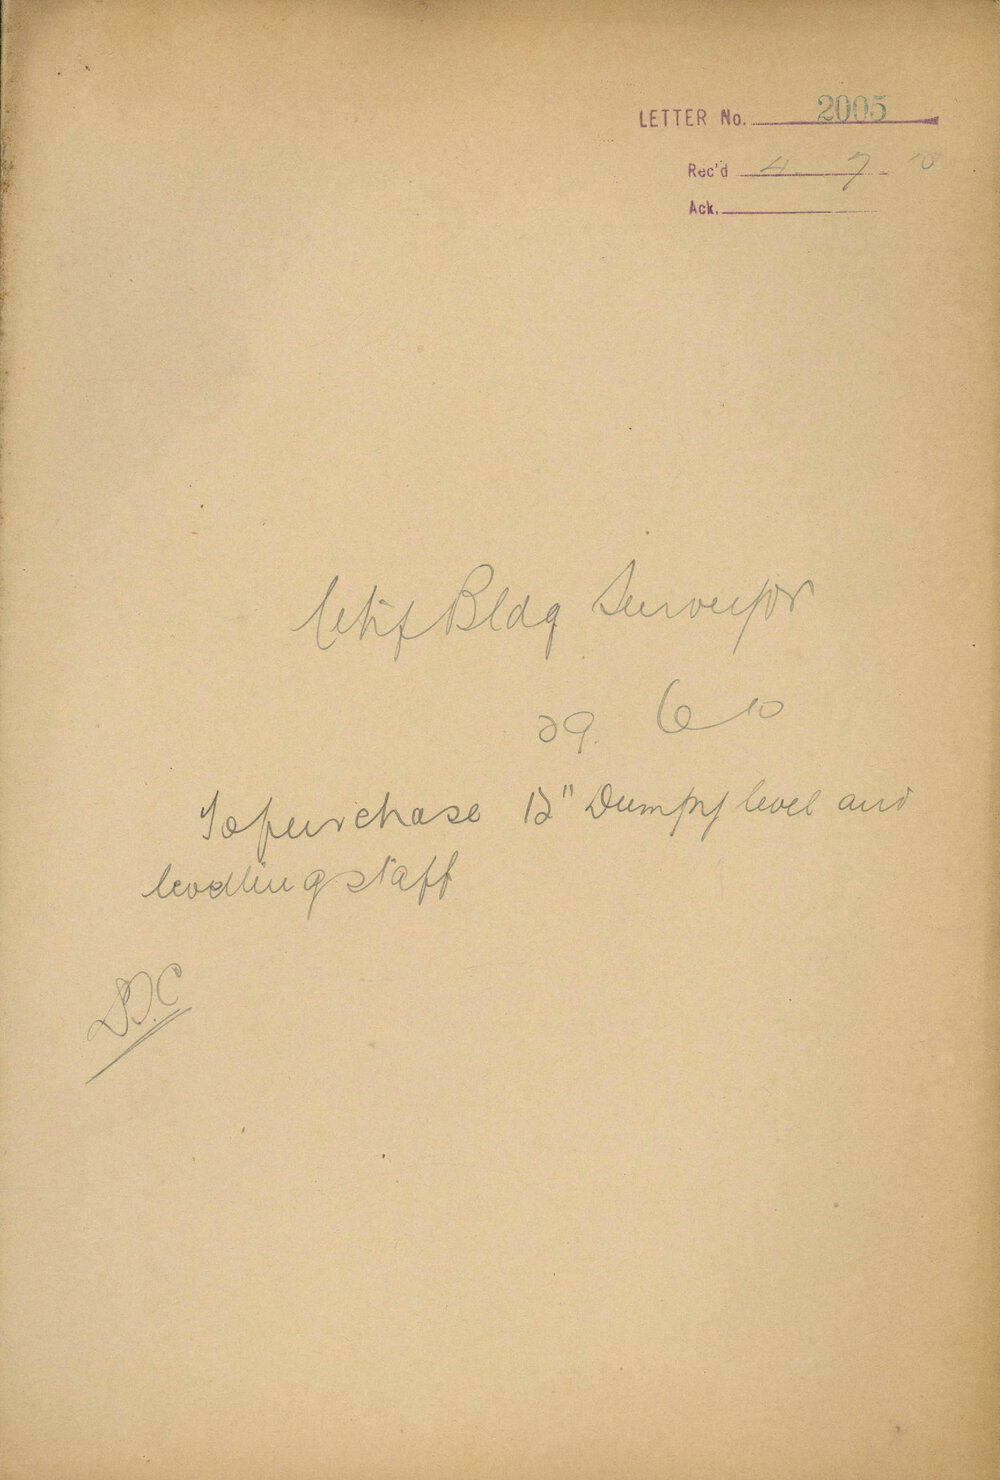 LETTER No. 2005
Rec'd 4 7 10
Ack.
City Bldg Surveyor
29. 6 10
To purchase 12" Dumpy level and
levelling staff